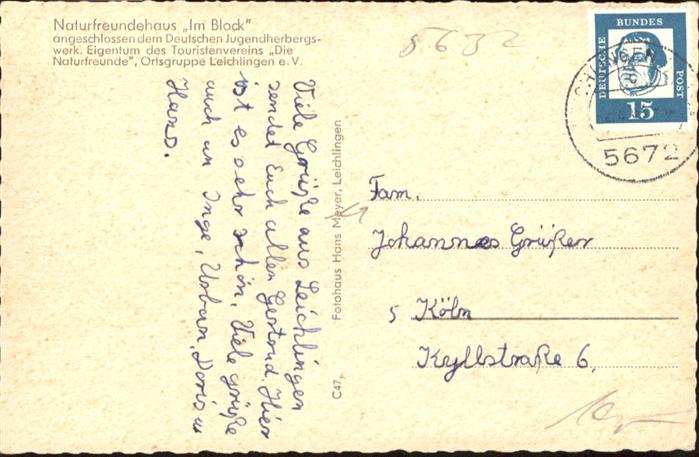 Naturfreundehaus „Im Block"
angeschlossen dem Deutschen Jugendherbergs-
werk. Eigentum des Touristenvereins „Die
Naturfreunde", Ortsgruppe Leichlingen e. V.
5632
DEUTSCHE
BUNDES
POST
15
5672
Viele Grüße aus Leichlingen
sendet Euch allen Gertrud. Hier
ist es sehr schön. Viele grüße
auch an Inge, Urban, Doris u
Hans.
Fotohaus Hans Meyer, Leichlingen
C47
Fam.
Johannes Grüßer
5 Köln
Kyllstraße 6,